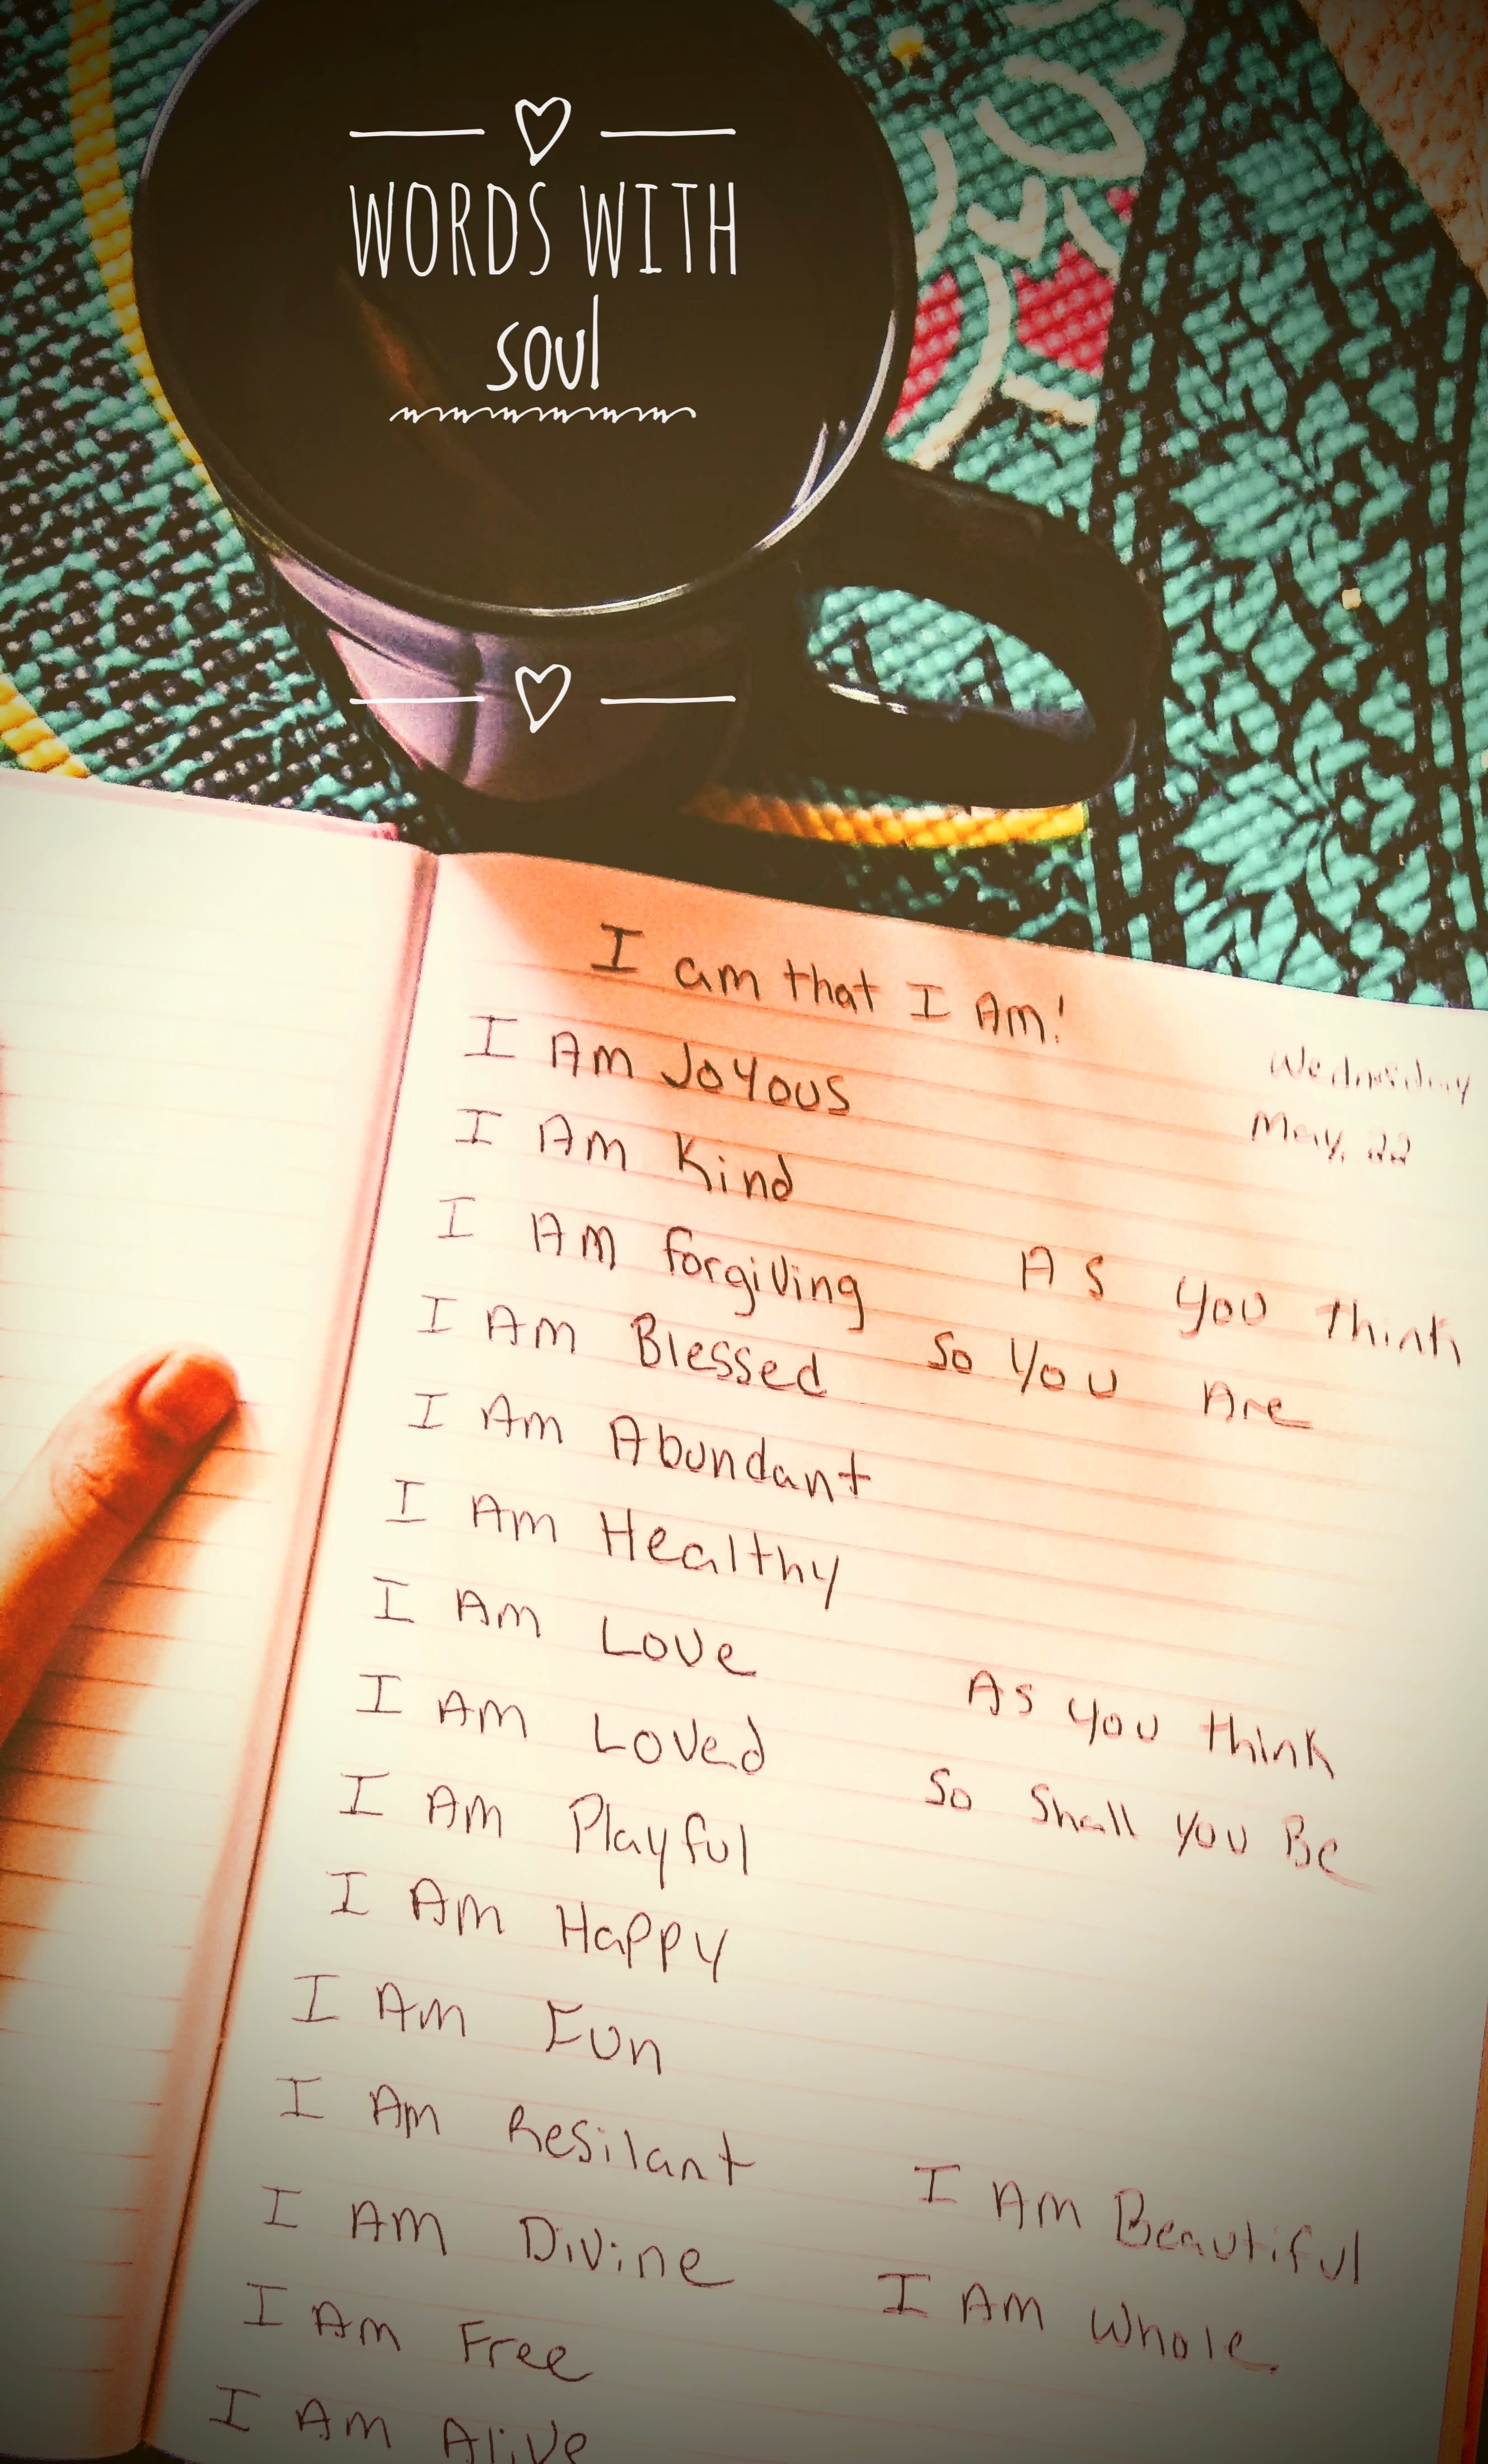 WORDS WITH
soul
I am that I Am!
Wednesday
May, 22
I Am Joyous
I Am Kind
I Am forgiving
As you think
I Am Blessed
So You Are
I Am Abundant
I Am Healthy
I Am Love
As you think
I Am Loved
So Shall You Be
I Am Playful
I Am Happy
I Am Fun
I Am Resilant
I Am Beautiful
I Am Divine
I Am Whole
I Am Free
I Am Alive